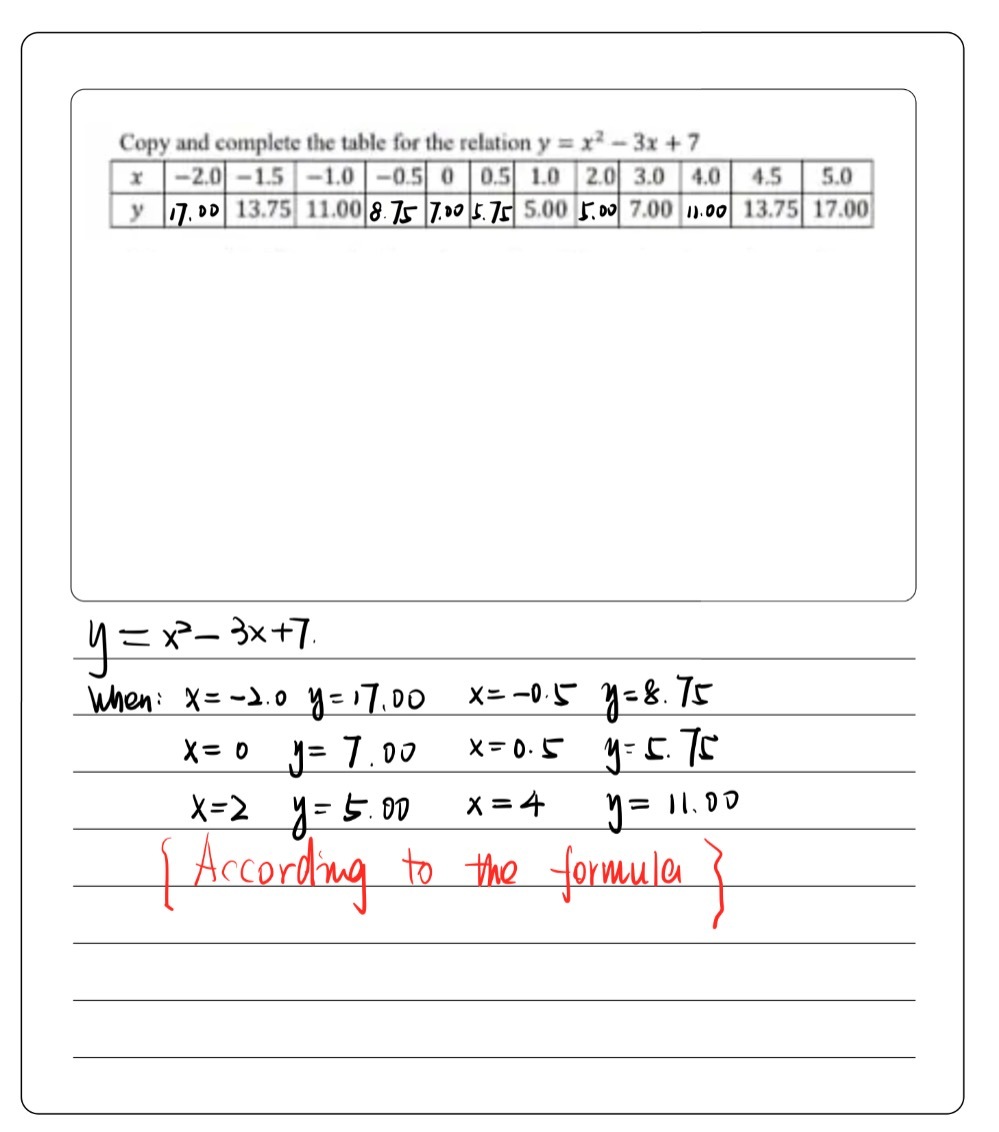 Copy and complete the table for the relation y = x² − 3x + 7
x −2.0 −1.5 −1.0 −0.5 0 0.5 1.0 2.0 3.0 4.0 4.5 5.0
y 17.00 13.75 11.00 8.75 7.00 5.75 5.00 5.00 7.00 11.00 13.75 17.00
y = x² − 3x + 7.
When: x = −2.0 y = 17.00 x = −0.5 y = 8.75
x = 0 y = 7.00 x = 0.5 y = 5.75
x = 2 y = 5.00 x = 4 y = 11.00
{ According to the formula }